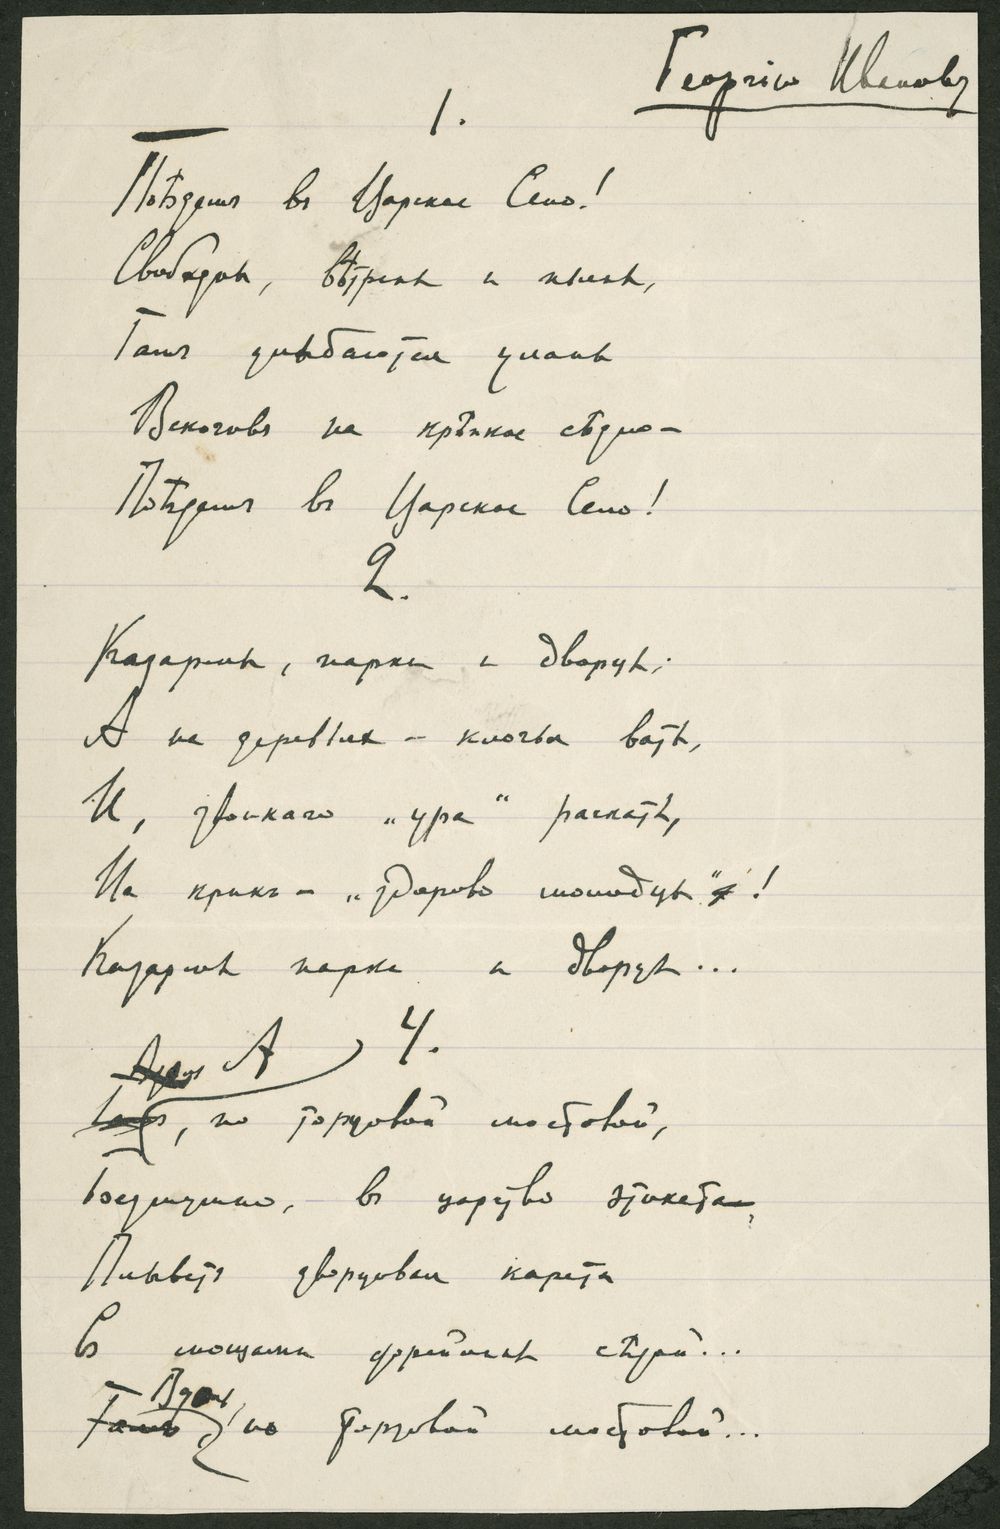 Георгію Иванову
1.
Поѣдемъ въ Царское Село!
Свободны, вѣтрены и пьяны,
Тамъ улыбаются уланы
Вскочивъ на крѣпкое сѣдло —
Поѣдемъ въ Царское Село!
2.
Казармы, парки и дворцы,
А на деревьяхъ — клочья ваты,
И, звонкаго „ура“ раскаты,
На крикъ — „здорово молодцы“!
Казармы парки и дворцы...
4.
А
, по торцовой мостовой,
Бездушно, въ царство этикета,
Плыветъ дворцовая карета
Съ мощами фрейлины сѣдой...
Вдоль,
Тамъ по торцовой мостовой...